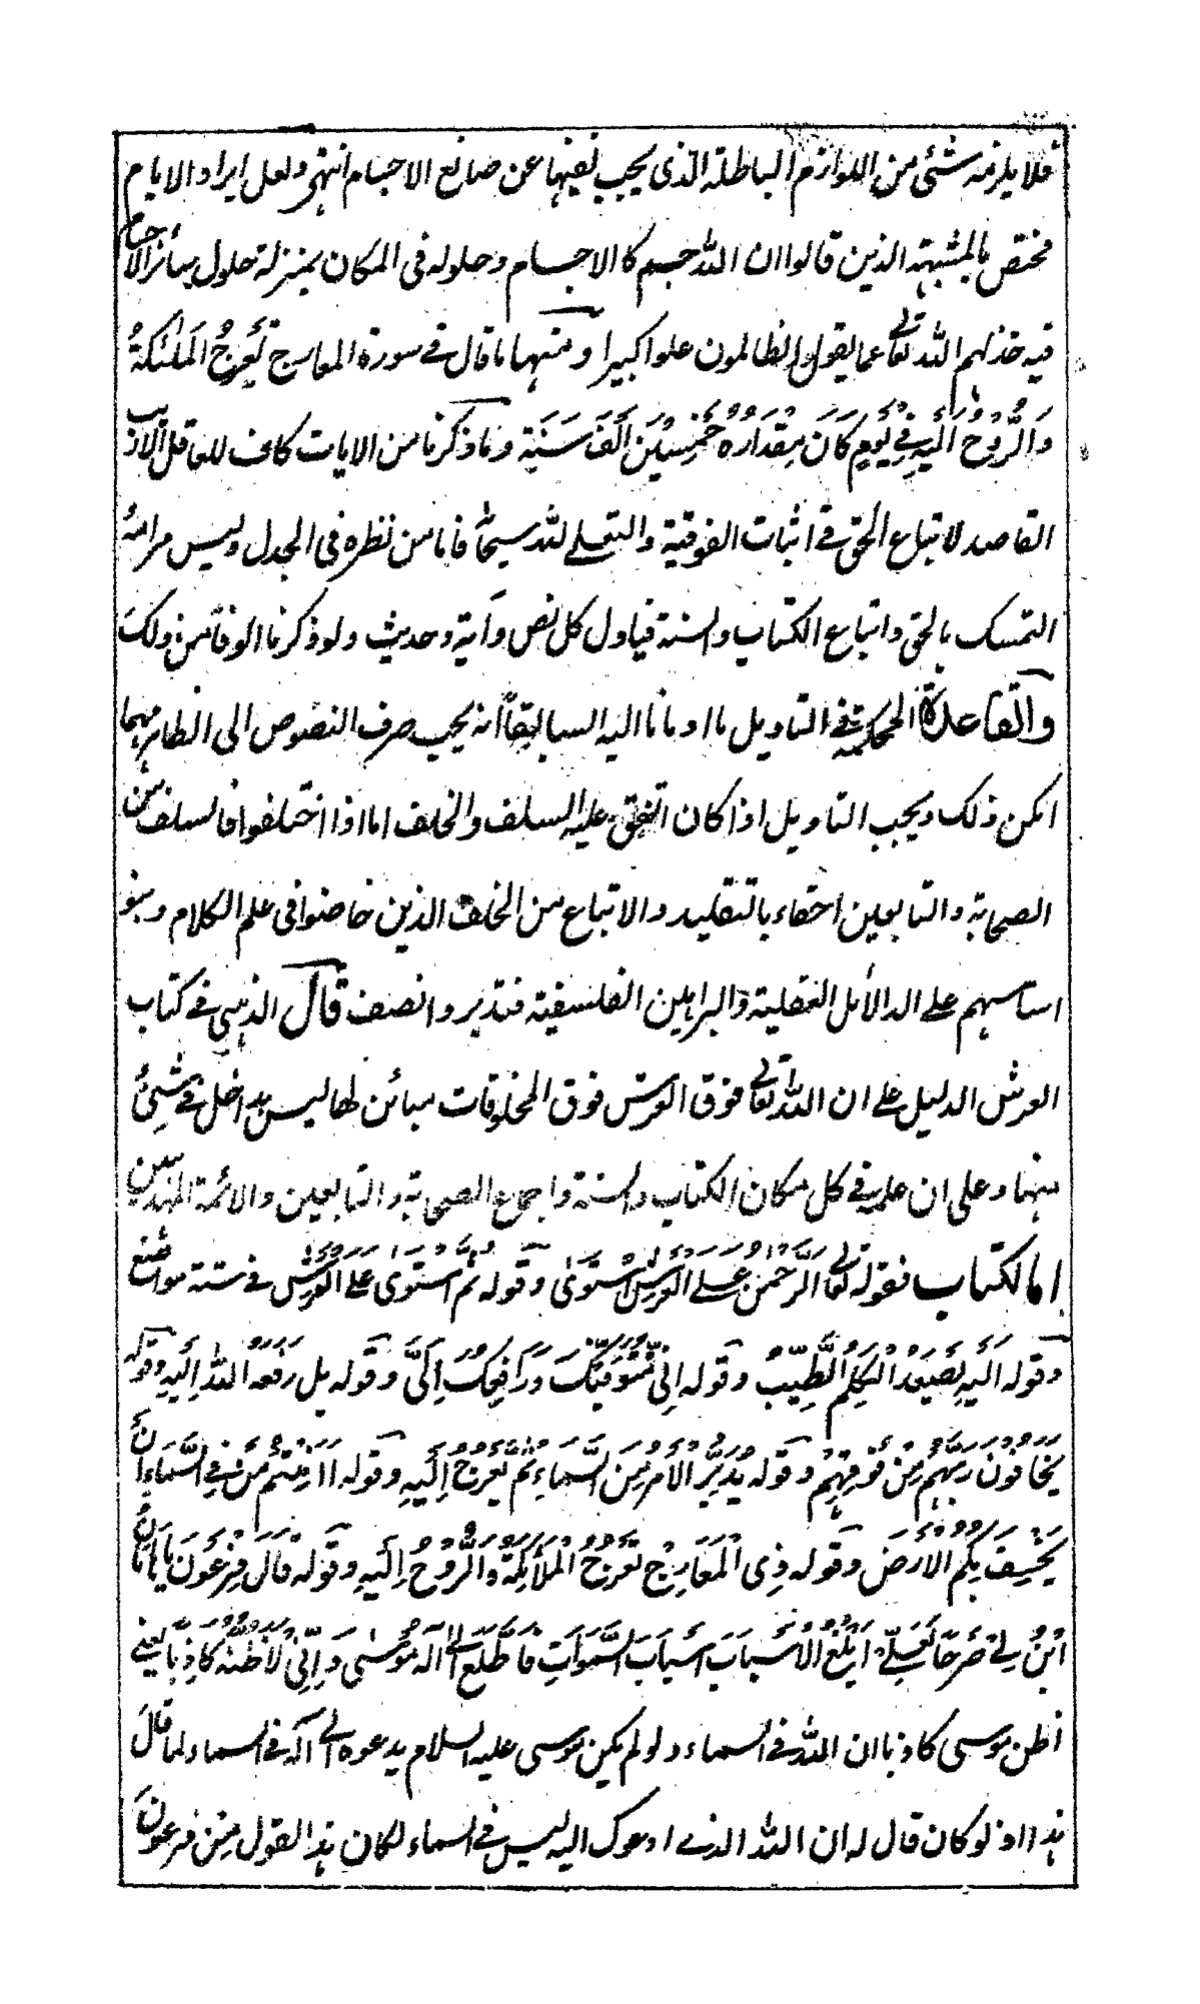 فلا يلزمه شئ من اللوازم الباطلة الذى يجب نفيها عن صانع الاجسام انتهى ولعل ايراد الايام
مختص بالمشبهة الذين قالوا ان الله جسم كالاجسام وحلوله فى المكان بمنزلة حلول سائر الاجسام
فيه خذلهم الله تعالى عما يقول الظالمون علوا كبيرا ومنها ما قال فى سورة المعارج تَعْرُجُ الْمَلٰئِكَةُ
وَالرُّوْحُ اِلَيْهِ فِيْ يَوْمٍ كَانَ مِقْدَارُهٗ خَمْسِيْنَ اَلْفَ سَنَةٍ وما ذكرنا من الايات كاف للعاقل الاديب
القاصد لاتباع الحق فى اثبات الفوقية والتعلے لله سبحانه فاما من نظره فى الجدل وليس مرامه
التمسك بالحق واتباع الكتاب والسنة فياول كل نص وآية وحديث ولو ذكرنا الوفا من ذلك
والقاعدة المحكمة فى التاويل ما اومأنا اليه السابقا انه يجب صرف النصوص الى الظاهر مهما
امكن ذلك ويجب التاويل اذا كان اتفق عليه السلف والخلف اما اذا اختلفوا فالسلف من
الصحابة والتابعين احقاء بالتقليد والاتباع من الخلف الذين خاضوا فى علم الكلام وبنو
اساسهم على الدلائل العقلية والبراهين الفلسفية فتدبر وانصف قال الذهبى فى كتاب
العرش الدليل على ان الله تعالى فوق العرش فوق المخلوقات مبائن لها ليس بداخل فى شئ
منها وعلى ان علمه فى كل مكان الكتاب والسنة واجماع الصحابة والتابعين والائمة المهديين
اما الكتاب فقوله تعالى اَلرَّحْمٰنُ عَلَى الْعَرْشِ اسْتَوٰى وقوله ثُمَّ اسْتَوٰى عَلَى الْعَرْشِ فى ستة مواضع
وقوله اِلَيْهِ يَصْعَدُ الْكَلِمُ الطَّيِّبُ وقوله اِنِّيْ مُتَوَفِّيْكَ وَرَافِعُكَ اِلَيَّ وقوله بل رَفَعَهُ اللهُ اِلَيْهِ وقوله
يَخَافُوْنَ رَبَّهُمْ مِنْ فَوْقِهِمْ وقوله يُدَبِّرُ الْاَمْرَ مِنَ السَّمَاءِ ثُمَّ يَعْرُجُ اِلَيْهِ وقوله ااَمِنْتُمْ مَنْ فِي السَّمَاءِ اَنْ
يَخْسِفَ بِكُمُ الْاَرْضَ وقوله ذِى الْمَعَارِجِ تَعْرُجُ الْمَلَائِكَةُ وَالرُّوْحُ اِلَيْهِ وقوله قَالَ فِرْعَوْنُ يَا هَامَانُ
ابْنِ لِيْ صَرْحًا لَعَلِّيْ اَبْلُغُ الْاَسْبَابَ اَسْبَابَ السَّمٰوَاتِ فَاَطَّلِعَ اِلٰى اِلٰهِ مُوْسٰى وَاِنِّيْ لَاَظُنُّهٗ كَاذِبًا يعنے
اظن موسى كاذبا ان الله فى السماء ولو لم يكن موسى عليه السلام يدعوه الى آله فى السماء لما قال
هذا اذ لو كان قال له ان الله الذے ادعوك اليه ليس فى السماء لكان هذا القول من فرعون